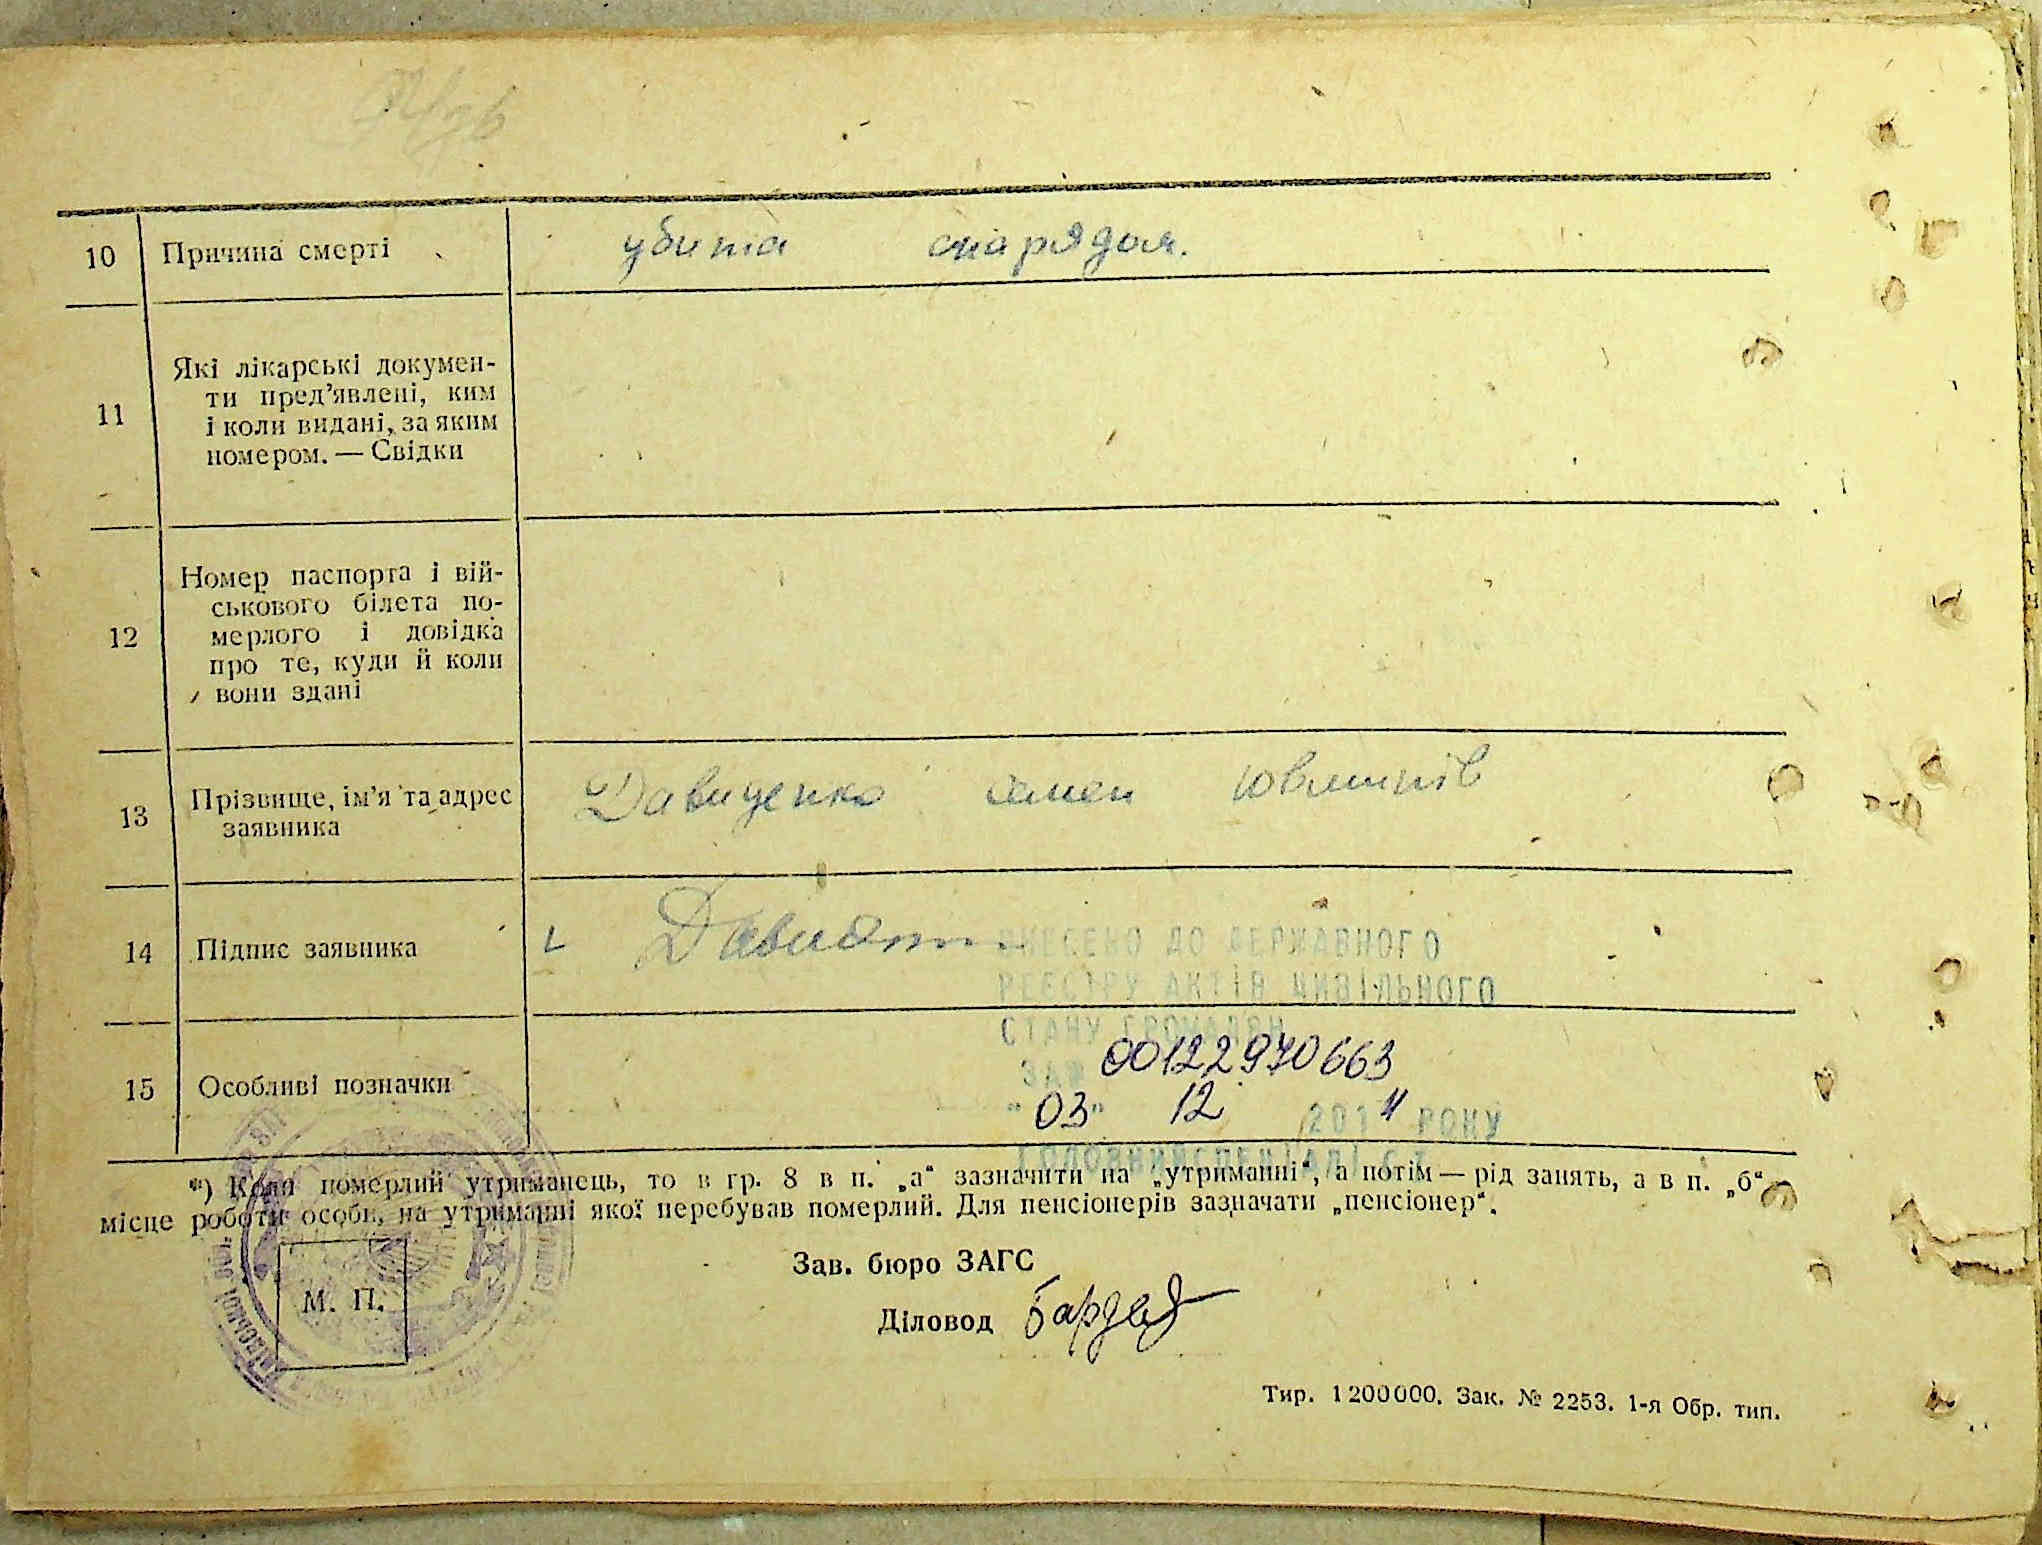 10 Причина смерті убита снарядом.
11 Які лікарські докумен-
ти пред’явлені, ким
і коли видані, за яким
номером. — Свідки
12 Номер паспорта і вій-
ськового білета по-
мерлого і довідка
про те, куди й коли
вони здані
13 Прізвище, ім’я та адрес
заявника
Давиденко семен
14 Підпис заявника
ВНЕСЕНО ДО ДЕРЖАВНОГО
РЕЄСТРУ АКТІВ ЦИВІЛЬНОГО
СТАНУ ГРОМАДЯН
ЗА № 00122970663
15 Особливі позначки
"03" 12 2011 РОКУ
ГОЛОВНИЙ СПЕЦІАЛІСТ
*) Коли померлий утриманець, то в гр. 8 в п. „а“ зазначити на „утриманні“, а потім — рід занять, а в п. „б“
місце роботи особи, на утриманні якої перебував померлий. Для пенсіонерів зазначати „пенсіонер“.
Зав. бюро ЗАГС
М. П.
Діловод
Тир. 1200000. Зак. № 2253. 1-я Обр. тип.